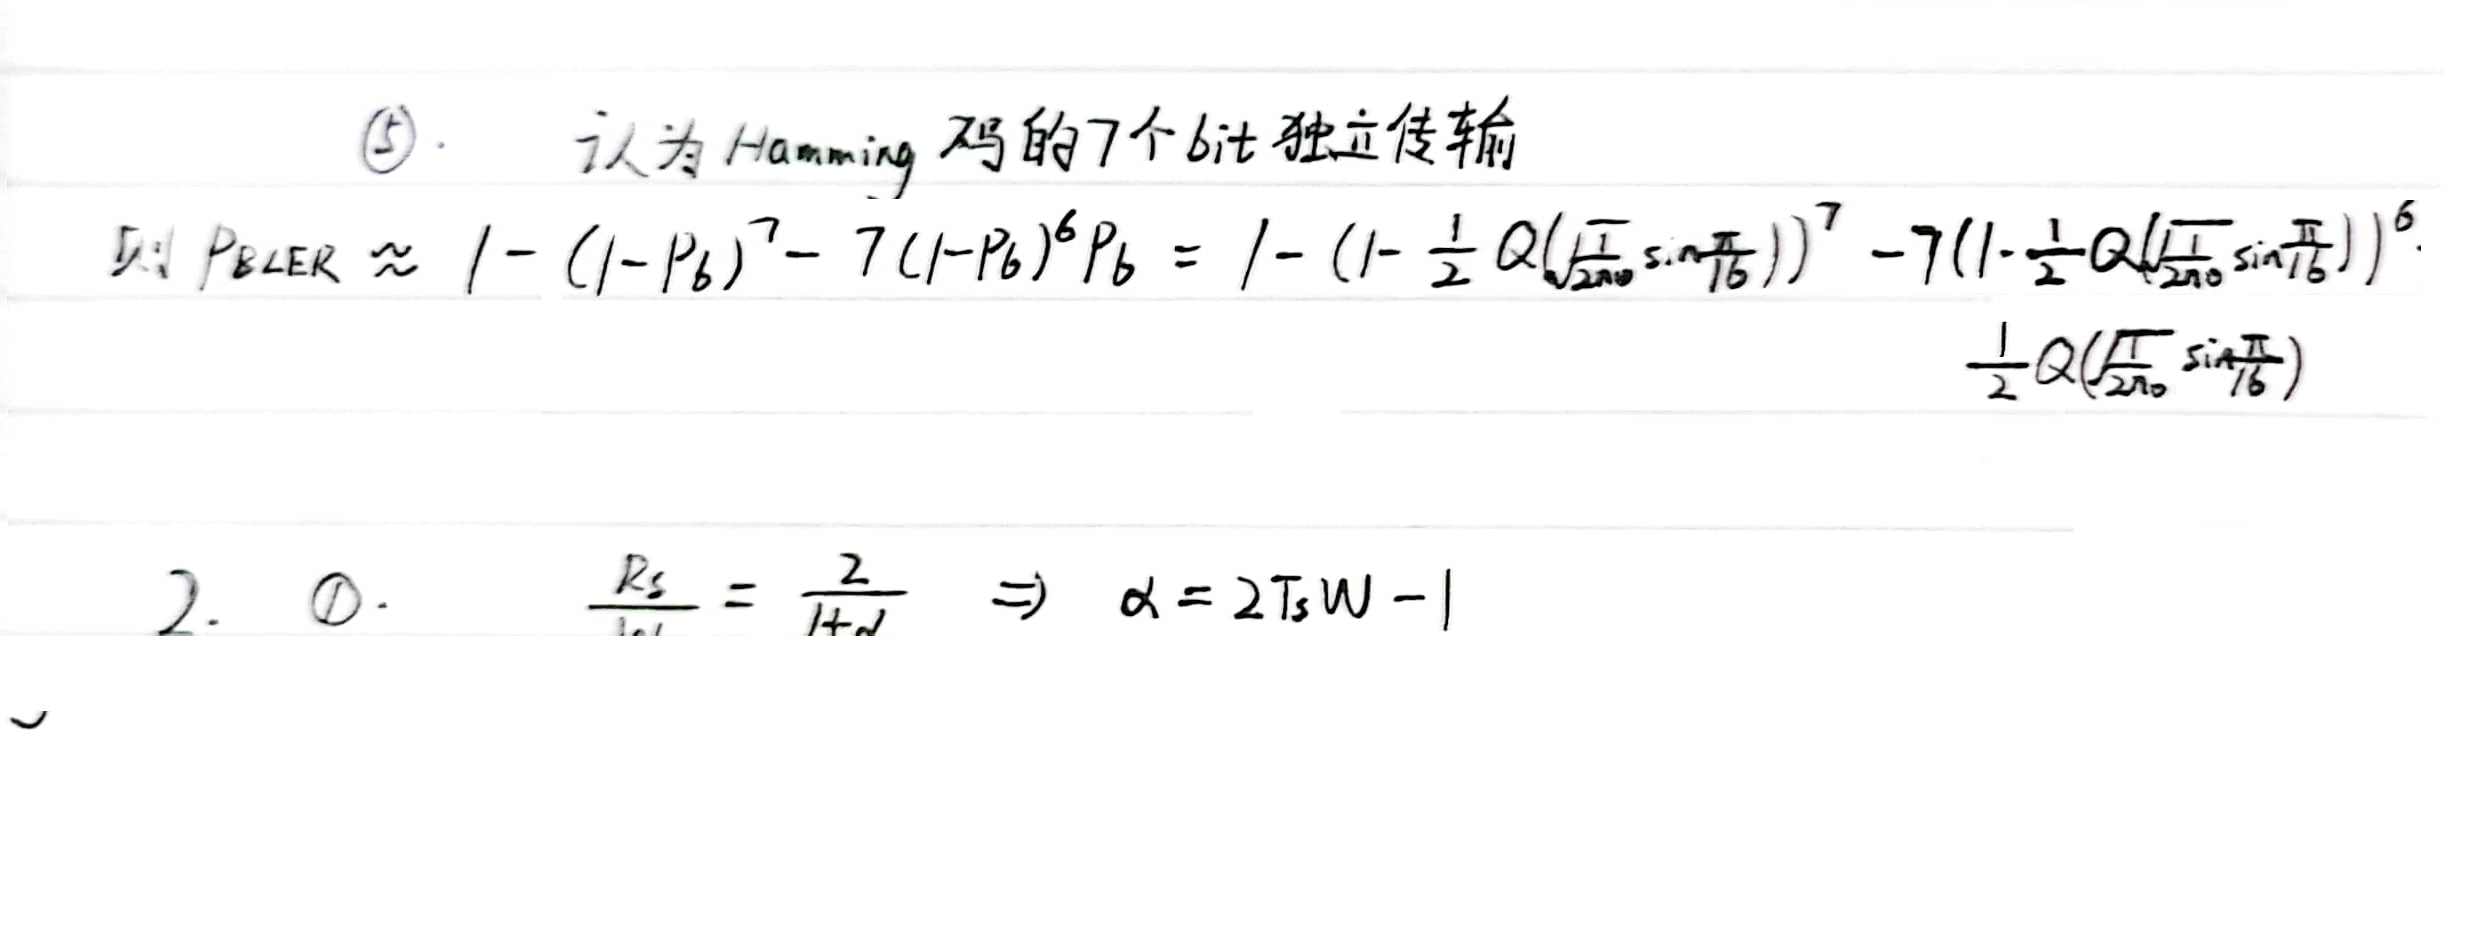 ⑤. 认为Hamming码的7个bit独立传输
则 P_BLER ≈ 1-(1-P_b)^7-7(1-P_b)^6P_b = 1-(1-\frac{1}{2}Q(\sqrt{\frac{1}{2n_0}}sin\frac{π}{16}))^7-7(1-\frac{1}{2}Q(\sqrt{\frac{1}{2n_0}}sin\frac{π}{16}))^6·
\frac{1}{2}Q(\sqrt{\frac{1}{2n_0}}sin\frac{π}{16})
2. ①. \frac{R_s}{W} = \frac{2}{1+α} ⇒ α=2T_sW-1